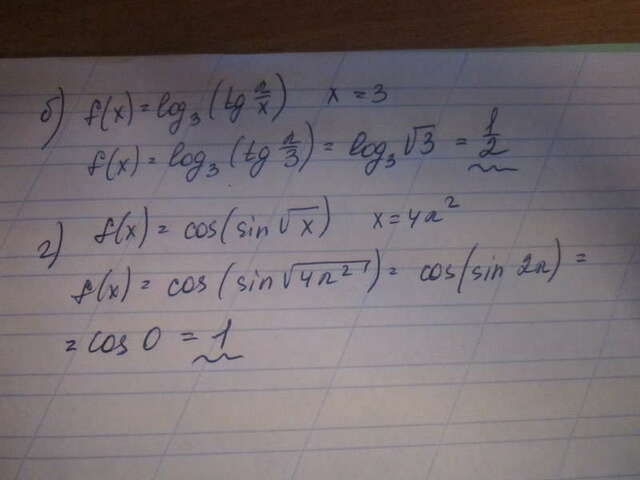 б) f(x) = log₃(tg π/x) x = 3
f(x) = log₃(tg π/3) = log₃√3 = 1/2
г) f(x) = cos(sin√x) x = 4π²
f(x) = cos(sin√4π²) = cos(sin 2π) =
= cos 0 = 1